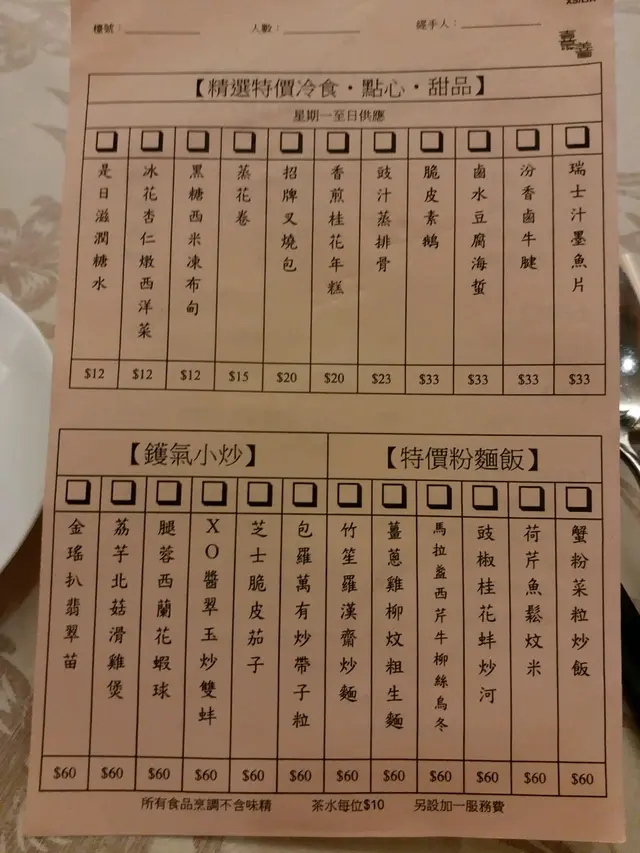 檯號：
人數：
經手人：
囍薈
【精選特價冷食・點心・甜品】
星期一至日供應
瑞士汁墨魚片 $33
汾香鹵牛腱 $33
鹵水豆腐海蜇 $33
脆皮素鵝 $33
豉汁蒸排骨 $23
香煎桂花年糕 $20
招牌叉燒包 $20
蒸花卷 $15
黑糖西米凍布甸 $12
冰花杏仁燉西洋菜 $12
是日滋潤糖水 $12
【特價粉麵飯】
蟹粉菜粒炒飯 $60
荷芹魚鬆炆米 $60
豉椒桂花蚌炒河 $60
馬拉盞西芹牛柳絲烏冬 $60
薑蔥雞柳炆粗生麵 $60
竹笙羅漢齋炒麵 $60
【鑊氣小炒】
包羅萬有炒帶子粒 $60
芝士脆皮茄子 $60
XO醬翠玉炒雙蚌 $60
腿蓉西蘭花蝦球 $60
荔芋北菇滑雞煲 $60
金瑤扒翡翠苗 $60
所有食品烹調不含味精 茶水每位$10 另設加一服務費